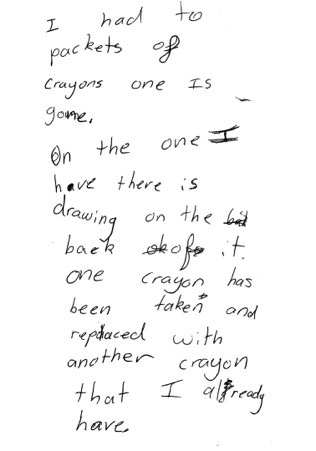 I had to
packets of
crayons one Is
gone.
On the one I
have there is
drawing on the
back of it.
one crayon has
been taken and
replaced with
another crayon
that I already
have.